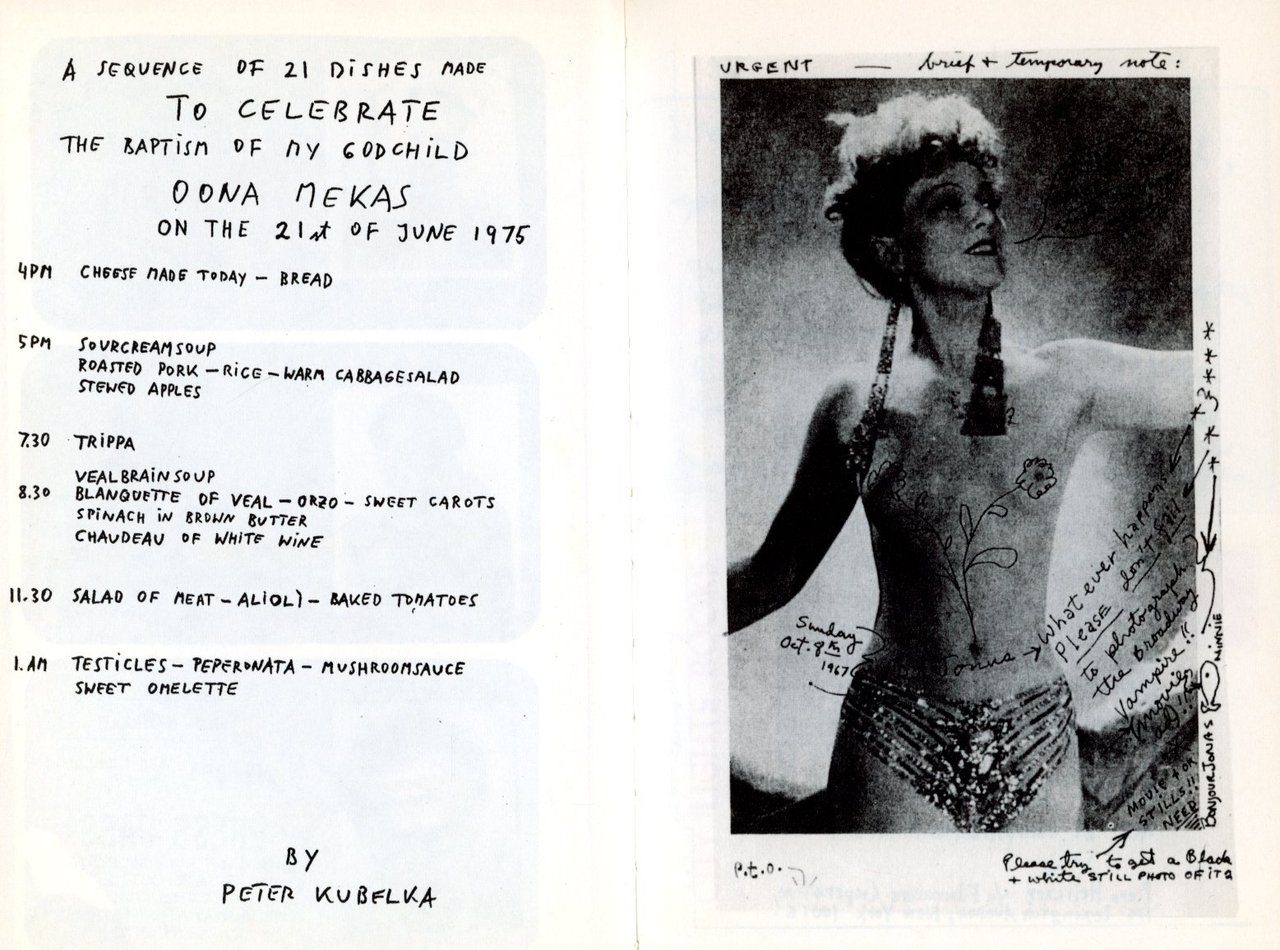 A SEQUENCE OF 21 DISHES MADE
TO CELEBRATE
THE BAPTISM OF MY GODCHILD
OONA MEKAS
ON THE 21st OF JUNE 1975
4PM CHEESE MADE TODAY – BREAD
5PM SOURCREAMSOUP
ROASTED PORK – RICE – WARM CABBAGESALAD
STEWED APPLES
7.30 TRIPPA
VEALBRAINSOUP
8.30 BLANQUETTE OF VEAL – ORZO – SWEET CAROTS
SPINACH IN BROWN BUTTER
CHAUDEAU OF WHITE WINE
11.30 SALAD OF MEAT – ALIOLI – BAKED TOMATOES
1.AM TESTICLES – PEPERONATA – MUSHROOMSAUCE
SWEET OMELETTE
BY
PETER KUBELKA
URGENT — brief + temporary note:
Sunday
Oct. 8th
1967
Jonas → What ever happens
PLEASE don't fail
to photograph
the Broadway
Vampire!!
(movie
ad)!!
MOVIE + OR
STILLS!!
NEED!
BONJOUR JONAS
MINNIE
Please try to get a Black
+ white STILL PHOTO OF IT 2
P.t.O.